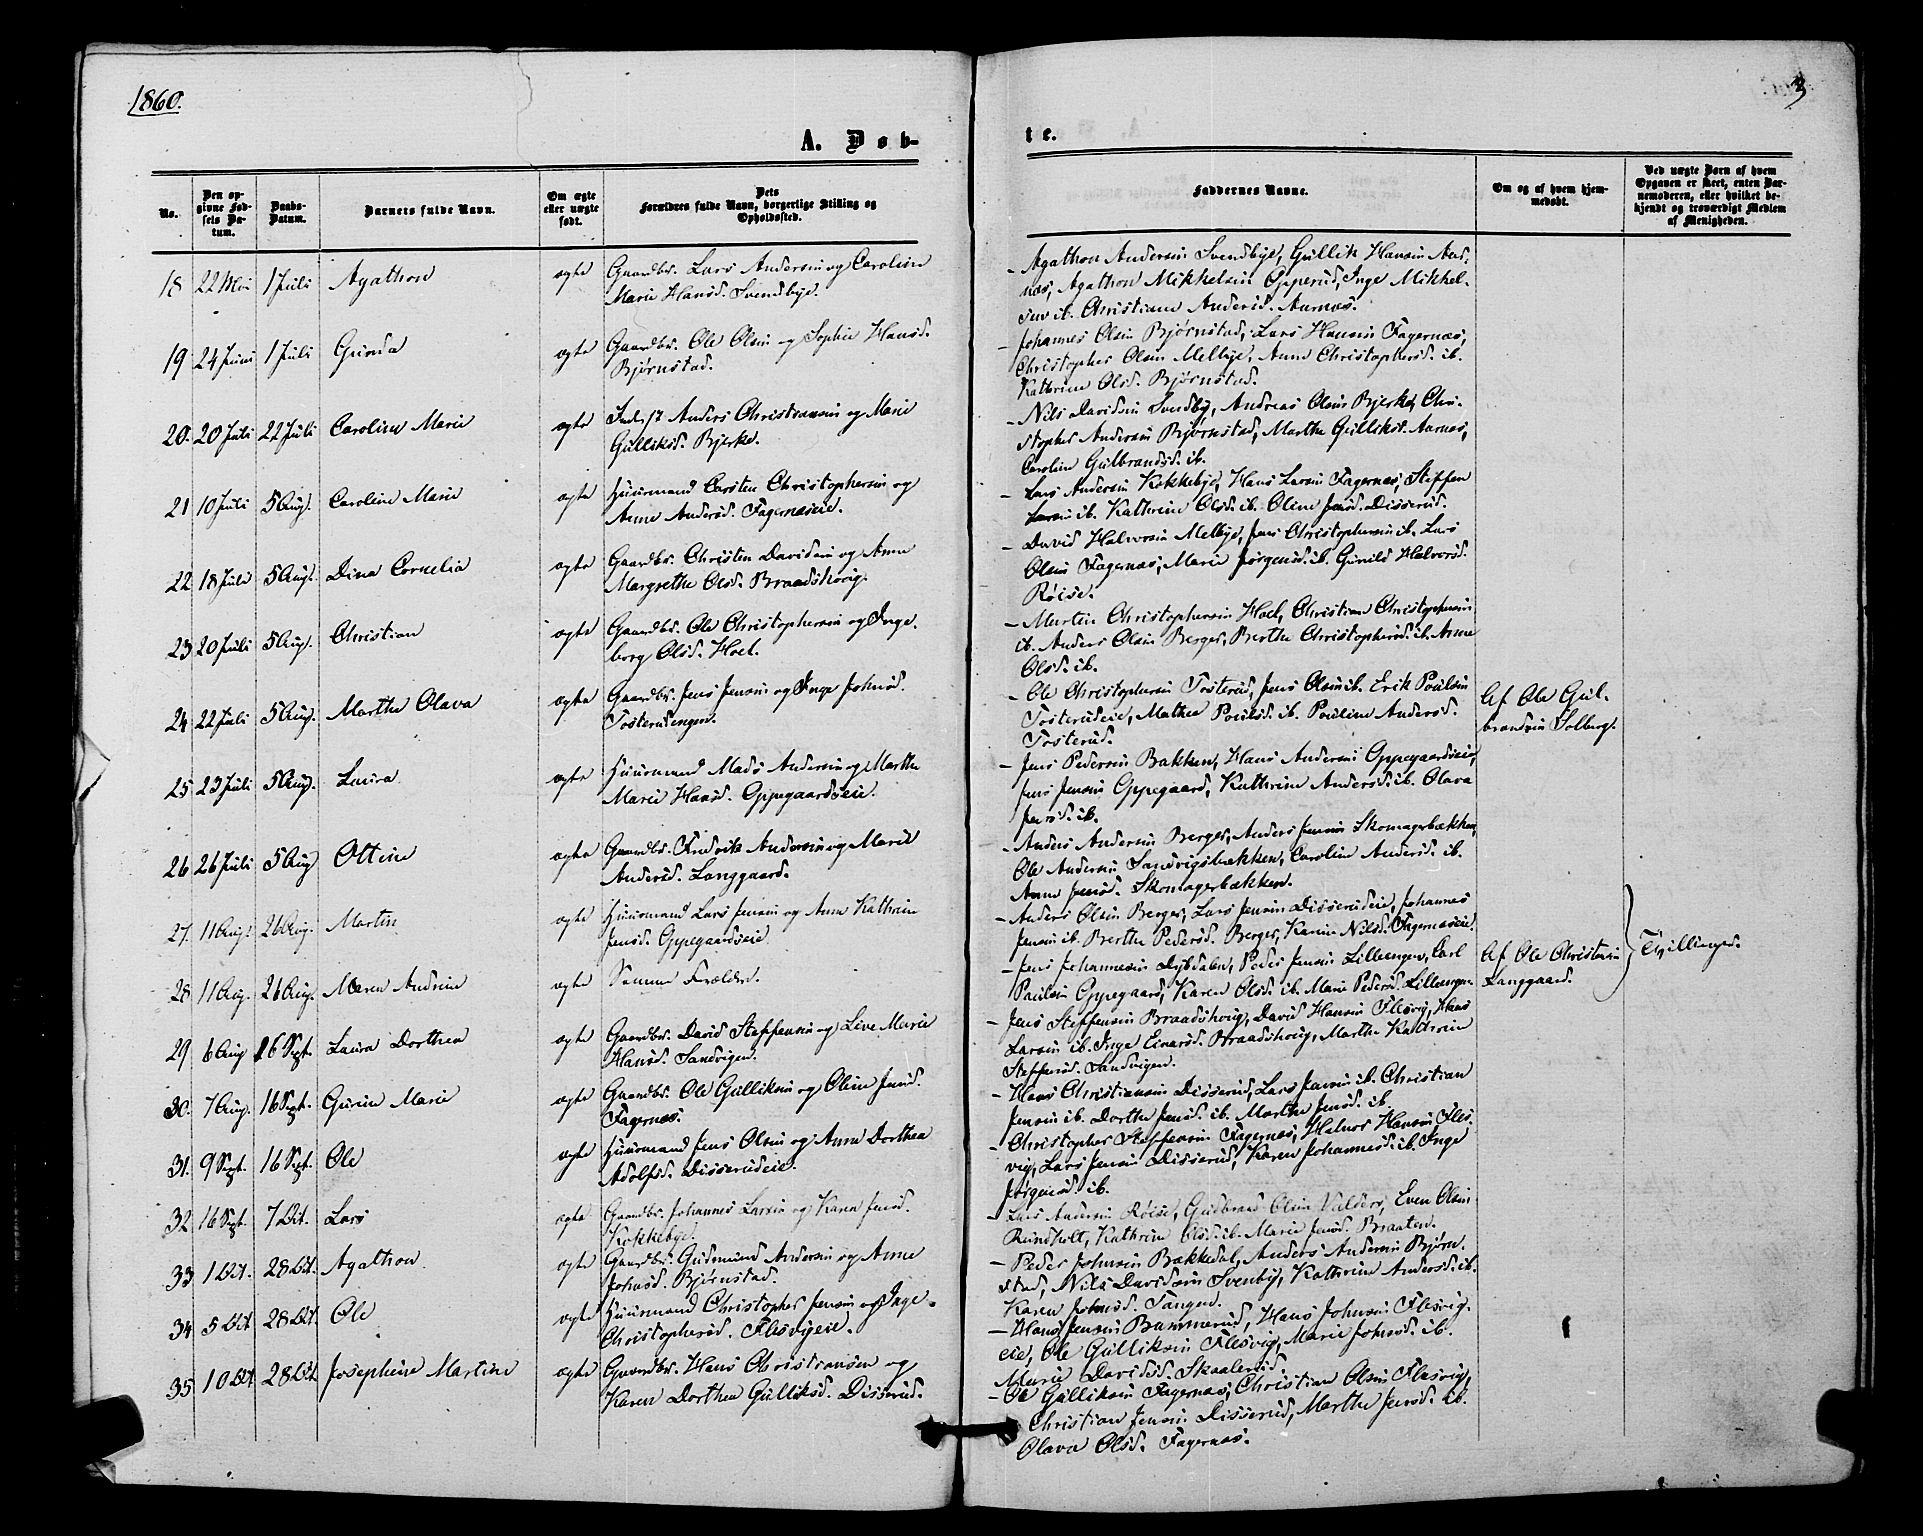 1860.
3
A. Døb-
te.
No.
Den op-
givne Fød-
sels Da-
tum.
Daabs-
Datum.
Barnets fulde Navn.
Om ægte
eller uægte
født.
Dets
Forældres fulde Navn, borgerlige Stilling og
Opholdssted.
Faddernes Navne.
Om og af hvem hjem-
medøbt.
Ved uægte Børn af hvem
Opgaven er skeet, enten Bar-
nemoderen, eller hvilket be-
kjendt og troværdigt Medlem
af Menigheden.
18 22 Mai 1 Juli Agathon ægte Gaardbr. Lars Andersen og Caroline
Marie Hansd. Svendbye.
- Agathon Andersen Svendbye, Gullik Hansen Aar-
næs, Agathon Mikkelsen Opperud, Inge Mikkel-
sen ib. Christiane Andersd. Aarnæs.
19 24 Juni 1 Juli Gunda ægte Gaardbr. Ole Olsen og Sophie Hansd.
Bjørnstad.
- Johannes Olsen Bjørnstad, Lars Hansen Fagernæs,
Christopher Olsen Melbye, Anne Christophersd. ib.
Kathrine Olsd. Bjørnstad.
20. 20 Juli 22 Juli Caroline Marie ægte Inderst Anders Christiansen og Marie
Gulliksd. Bjerke.
- Nils Davidsen Svendby, Andreas Olsen Bjerke, Chri-
stopher Andersen Bjørnstad, Marthe Gulliksd. Aarnæs,
Caroline Gulbrandsd. ib.
21 10 Juli 5 Aug. Caroline Marie ægte Huusmand Carsten Christophersen og
Anne Andersd. Fagernæseie.
- Lars Andersen Kokkebye, Hans Larsen Fagernæs, Steffen
Larsen ib. Kathrine Olsd. ib. Oline Jensd. Disserud.
22 18 Juli 5 Aug. Dina Cornelia ægte Gaardbr. Christen Davidsen og Anne
Margrethe Olsd. Braadshoug.
- David Halvorsen Melbye, Jens Christophersen ib. Lars
Olsen Fagernæs, Marie Jørgensd. ib. Gunild Halvorsd.
Röise.
23 20 Juli 5 Aug. Christian ægte Gaardbr. Ole Christophersen og Inge-
borg Olsd. Hoel.
- Martin Christophersen Hoel, Christian Christophersen
ib. Anders Olsen Berger, Berthe Christophersd. ib. Anne
Olsd. ib.
24 22 Juli 5 Aug. Marthe Olava ægte Gaardbr. Jens Jensen og Inge Johnsd.
Tosterudengen.
- Ole Christophersen Tosterud, Jens Olsen ib. Erik Poulsen
Tosterudeie, Mathea Poulsd. ib. Pouline Andersd.
Tosterud.
Af Ole Gul-
brandsen Solberg.
25 23 Juli 5 Aug. Laura ægte Huusmand Mads Andersen og Marthe
Marie Hansd. Oppegaardseie.
- Jens Pedersen Bakken, Hans Andersen Oppegaardseie,
Jens Jensen Oppegaard, Kathrine Andersd. ib. Olava
Jensd. ib.
26 26 Juli 5 Aug Ottine ægte Gaardbr. Fredrik Andersen og Marie
Andersd. Langgaard.
- Anders Andersen Berger, Anders Jensen Skomagerbakken,
Ole Andersen Sandvigsbakken, Caroline Andersd. ib.
Anne Jensd. Skomagerbakken.
27. 11 Aug. 26 Aug. Martin ægte Huusmand Lars Jensen og Anne Kathrine
Jensd. Oppegaardseie
- Anders Olsen Berger, Lars Jensen Disserudeie, Johannes
Jensen ib. Berthe Pedersd. Berger, Karine Nilsd. Fagernæseie.
Tvillinger.
28 11 Aug. 26 Aug. Maren Andrine ægte Samme Forældre.
- Jens Johannesen Dybdalen, Peder Jensen Lilleengen, Carl
Paulsen Oppegaard, Karen Olsd. ib. Marie Pedersd. Lilleengen
Af Ole Christensen
Langgaard.
29 6 Aug 16 Sept. Laura Dorthea ægte Gaardbr. David Steffensen og Live Marie
Hansd. Sandvigen.
- Jens Steffensen Braadshoug, David Hansen Flesvig, Hans
Larsen ib. Inge Einarsd. Braadshoug, Marthe Kathrine
Steffensd. Sandvigen.
30. 7 Aug. 16 Sept. Gurine Marie ægte Gaardbr. Ole Gulliksen og Oline Jensd.
Fagernæs.
- Hans Christiansen Disserud, Lars Jensen ib. Christian
Jensen ib. Dorthe Jensd. ib. Marthe Jensd. ib.
31. 9 Sept. 16 Sept. Ole ægte Huusmand Jens Olsen og Anne Dorthea
Adolfsd. Disserudeie.
- Christopher Steffensen Fagernæs, Halvor Hansen Fles-
vig, Lars Jensen Disserud, Karen Johannesd. ib. Inge
Jørgensd. ib.
32 16 Sept. 7 Oct. Lars ægte Gaardbr. Johannes Larsen og Karen Jensd.
Kokkebye.
- Lars Andersen Röise, Gudbrand Olsen Valders, Even Olsen
Rundholt, Kathrine Olsd. ib. Marie Jensd. Braaten.
33 1 Oct. 28 Oct. Agathon ægte Gaardbr. Gudmund Andersen og Anne
Johnsd. Bjørnstad.
- Peder Johnsen Bækkedal, Anders Andersen Bjørn-
stad, Nils Davidsen Svenby, Kathrine Andersd. ib.
Karen Johnsd. Tangen.
34 5 Oct 28 Oct. Ole ægte Huusmand Christopher Jensen og Inge
Christophersd. Flesvigeie.
- Hans Jensen Bammerud, Hans Johnsen Flesvig-
eie, Ole Gulliksen Flesvig, Marie Johnsd. ib.
Marie Davidsd. Skaalerud.
35 10 Oct 28 Oct Josephine Martine ægte Gaardbr. Hans Christiansen og
Karen Dorthea Gulliksd. Disserud.
- Ole Gulliksen Fagernæs, Christian Olsen Flesvig,
Christian Jensen Disserud, Marthe Jensd. ib.
Olava Olsd. Fagernæs.